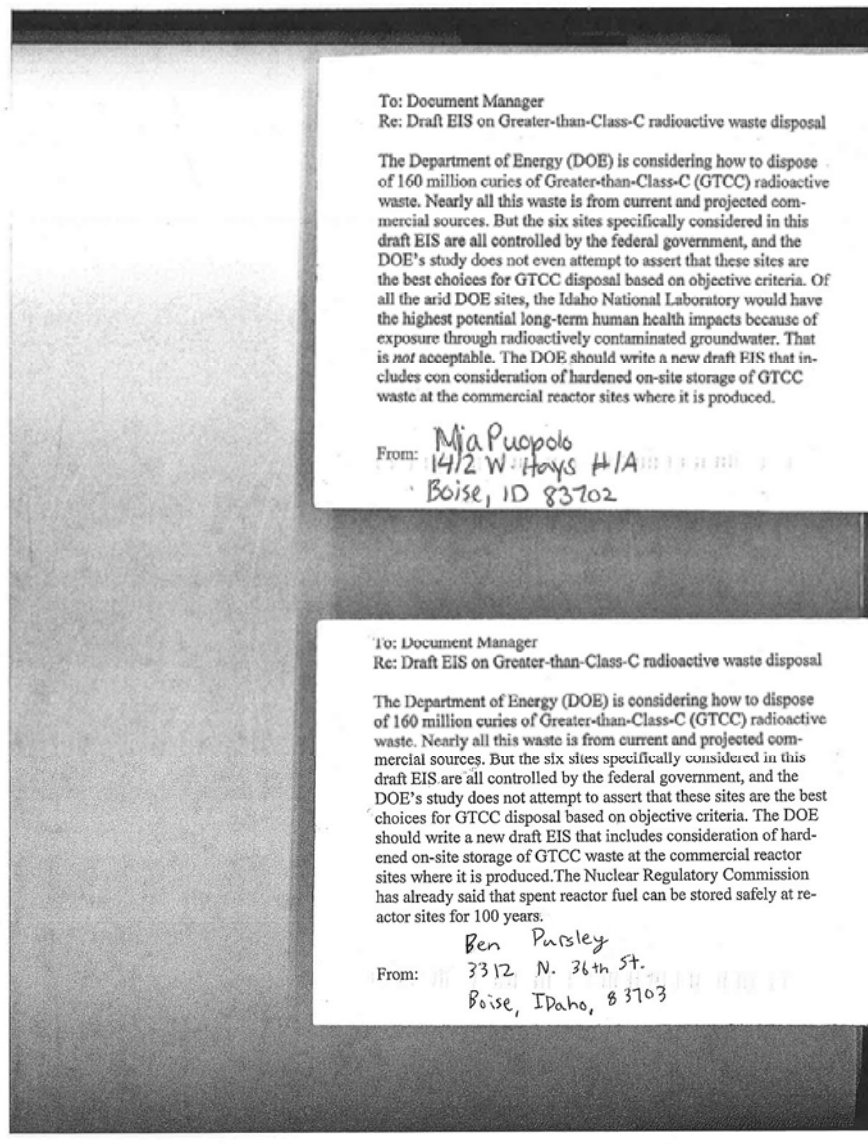 To: Document Manager
Re: Draft EIS on Greater-than-Class-C radioactive waste disposal
The Department of Energy (DOE) is considering how to dispose
of 160 million curies of Greater-than-Class-C (GTCC) radioactive
waste. Nearly all this waste is from current and projected com-
mercial sources. But the six sites specifically considered in this
draft EIS are all controlled by the federal government, and the
DOE's study does not even attempt to assert that these sites are
the best choices for GTCC disposal based on objective criteria. Of
all the arid DOE sites, the Idaho National Laboratory would have
the highest potential long-term human health impacts because of
exposure through radioactively contaminated groundwater. That
is not acceptable. The DOE should write a new draft EIS that in-
cludes con consideration of hardened on-site storage of GTCC
waste at the commercial reactor sites where it is produced.
From: Mia Puopolo
1412 W. Hays #1A
Boise, ID 83702
To: Document Manager
Re: Draft EIS on Greater-than-Class-C radioactive waste disposal
The Department of Energy (DOE) is considering how to dispose
of 160 million curies of Greater-than-Class-C (GTCC) radioactive
waste. Nearly all this waste is from current and projected com-
mercial sources. But the six sites specifically considered in this
draft EIS are all controlled by the federal government, and the
DOE's study does not attempt to assert that these sites are the best
choices for GTCC disposal based on objective criteria. The DOE
should write a new draft EIS that includes consideration of hard-
ened on-site storage of GTCC waste at the commercial reactor
sites where it is produced.The Nuclear Regulatory Commission
has already said that spent reactor fuel can be stored safely at re-
actor sites for 100 years.
Ben Pursley
From: 3312 N. 36th St.
Boise, IDaho, 83703